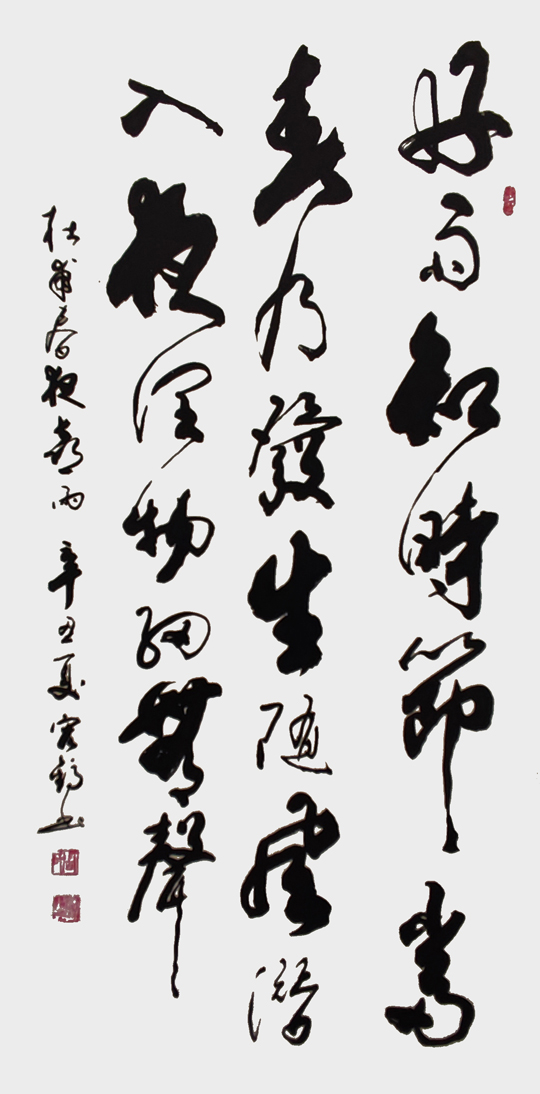 好雨知時節當
春乃發生隨風潛
入夜潤物細無聲
杜甫春夜喜雨 辛丑夏宏鶴書